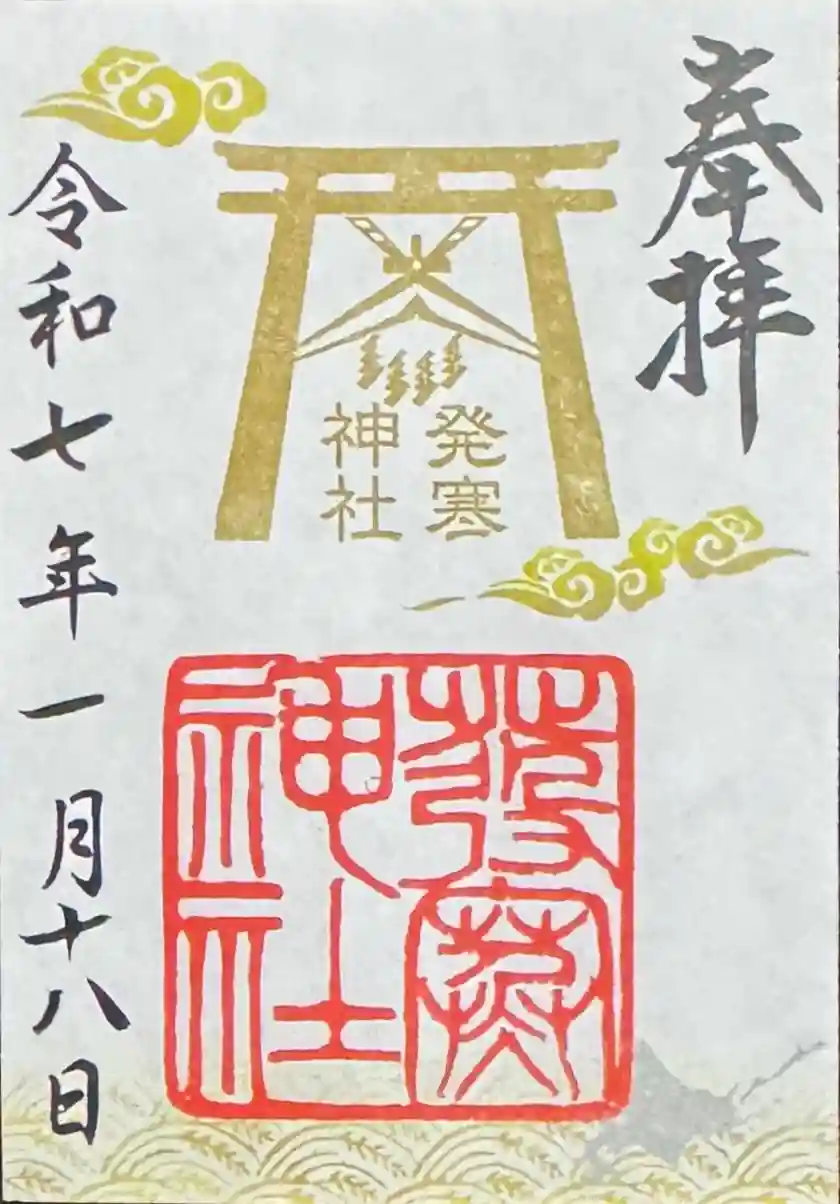 奉拝
発寒
神社
發寒
神社
令和七年一月十八日